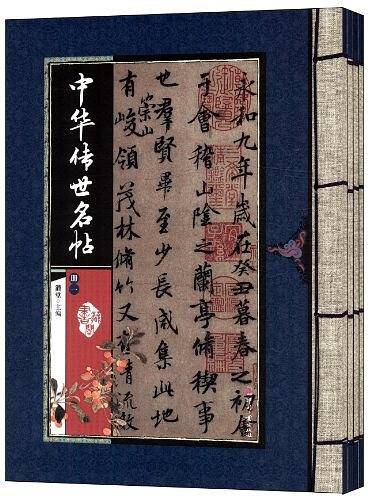 中华传世名帖
主编
永和九年歲在癸丑暮春之初會
于會稽山陰之蘭亭脩稧事
也羣賢畢至少長咸集此地
有崇山峻領茂林脩竹又有清流激